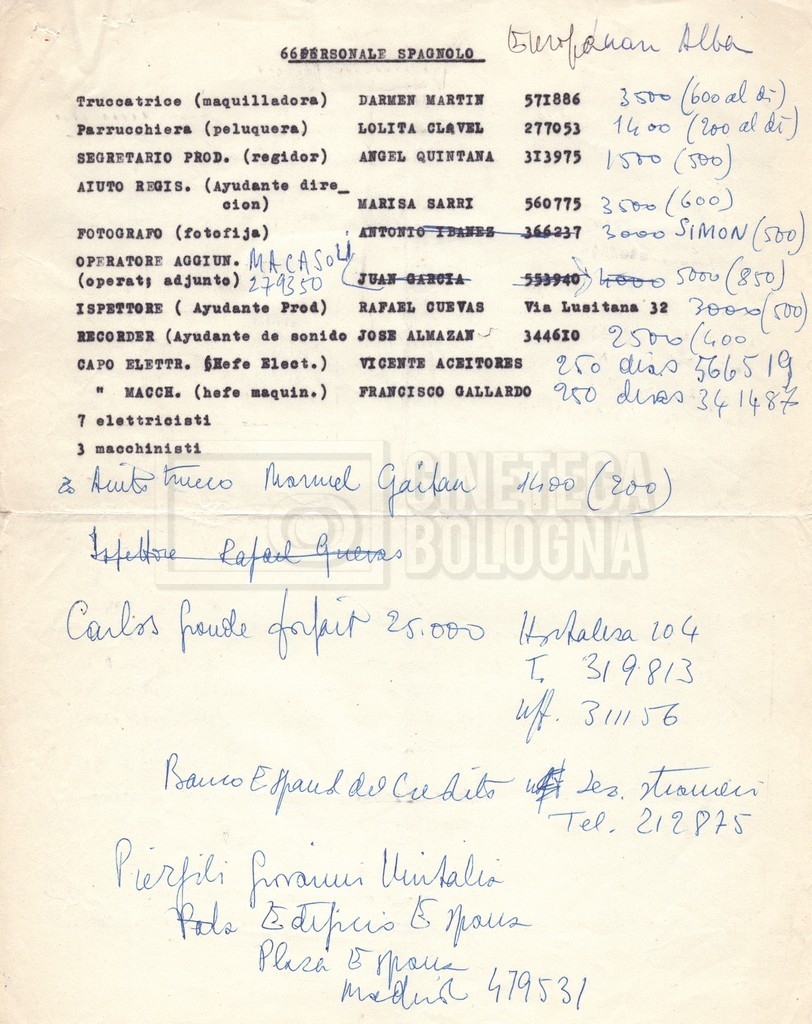 66PERSONALE SPAGNOLO Alba
Truccatrice (maquilladora) DARMEN MARTIN 571886 3500 (600 al dì)
Parrucchiera (peluquera) LOLITA CLAVEL 277053 1400 (200 al dì)
SEGRETARIO PROD. (regidor) ANGEL QUINTANA 313975 1500 (500)
AIUTO REGIS. (Ayudante dire_
cion) MARISA SARRI 560775 3500 (600)
FOTOGRAFO (fotofija) ANTONIO IBANEZ 366237 3000 SIMON (500)
OPERATORE AGGIUN. MACASOLI
(operat; adjunto) 279350 JUAN GARCIA 553940 4000 5000 (850)
ISPETTORE ( Ayudante Prod) RAFAEL CUEVAS Via Lusitana 32 3000 (500)
RECORDER (Ayudante de sonido JOSE ALMAZAN 344610 2500 (400
CAPO ELETTR. (Hefe Elect.) VICENTE ACEITORES 250 dias 566519
" MACCH. (hefe maquin.) FRANCISCO GALLARDO 250 dias 341487
7 elettricisti
3 macchinisti
Aiuto trucco Manuel Gaitan 1400 (200)
CINETECA
BOLOGNA
Ispettore Rafael Guevas
Carlos Grande forfait 25.000 Hortalesa 104
T. 319.813
uff. 311156
Banco Espanol del Credito Sez. stranieri
Tel. 212875
Piergili Giovanni Unitalia
Edificio Espana
Plaza Espana
Madrid 479531